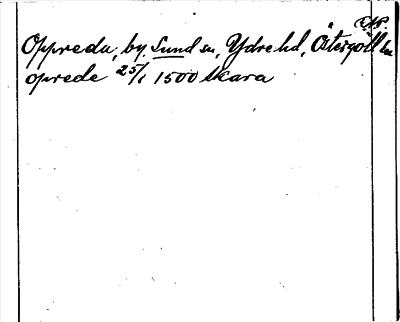 Oppreda, by, Sund sn, Ydre hd, Östergötl. län
oprede 25/1 1500 Skara